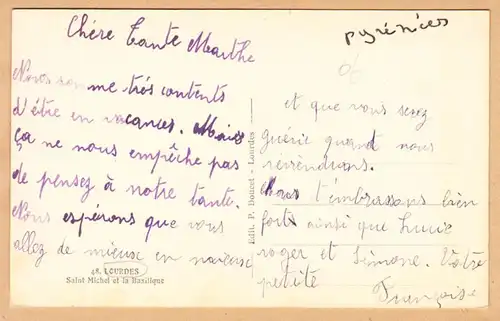 Chère Tante Marthe
Nous somme très contents
d'être en vacances. Mais
ça ne nous empêche pas
de pensez à notre tante.
Nous espérons que vous
allez de mieux en mieux
et que vous serez
guérie quand nous
reviendrons.
Nous t'embrassons bien
fort ainsi que Lucie
roger et Simone. Votre
petite
Françoise
pyrénées
Edit. P. Doucet - Lourdes
48. LOURDES
Saint Michel et la Basilique